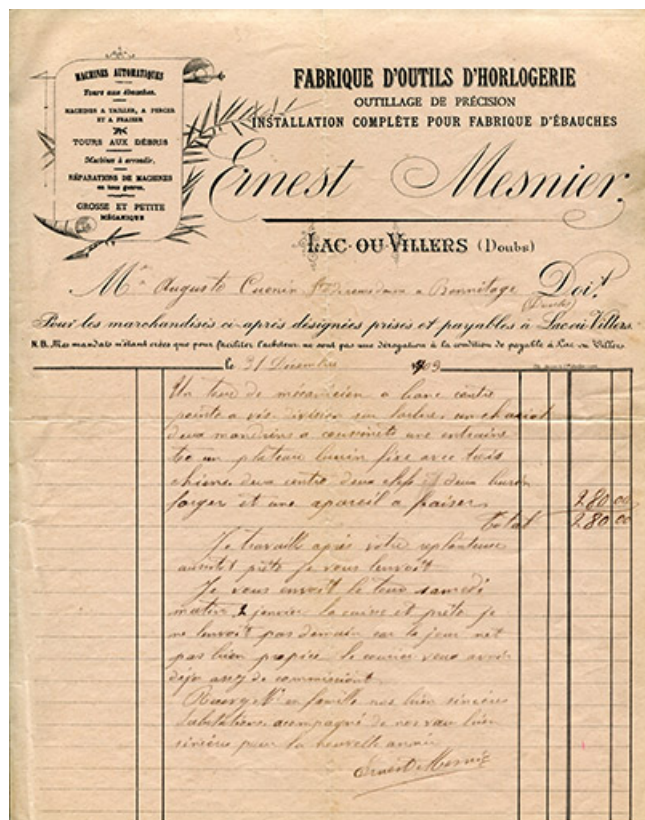 MACHINES AUTOMATIQUES
Tours aux ébauches.
MACHINES A TAILLER, A PERCER
ET A FRAISER
TOURS AUX DÉBRIS
Machines à arrondir.
RÉPARATIONS DE MACHINES
en tous genres.
GROSSE ET PETITE
MÉCANIQUE
FABRIQUE D'OUTILS D'HORLOGERIE
OUTILLAGE DE PRÉCISION
INSTALLATION COMPLÈTE POUR FABRIQUE D'ÉBAUCHES
Ernest Mesnier,
LAC-OU-VILLERS (Doubs)
Mr Auguste Cuenin a Bonnétage Doit
(Doubs)
Pour les marchandises ci-après désignées prises et payables à Lac-ou-Villers.
N.B. Mes mandats n'étant crées que pour faciliter l'acheteur ne sont pas une dérogation à la condition de payable à Lac-ou-Villers
le 31 Décembre 1909
Un tour de mécanicien a banc contre
pointe a vis division sur l'arbre un chariot
deux mandrins a coussinets une entraine
un plateau burin fixe avec trois
chiens deux contre deux clefs deux burin
forger et une apareil a fraiser 280 00
Total 280 00
Je travaille après votre
aussitôt prête je vous l'envoit
Je vous envoit le tour samedi
matin 2 janvier la caisse et prète je
ne l'envoit pas demain car le jour net
pas bien propice le courrier vous avoir
déja assez de commissiont
Recevez Mr en famille nos bien sincères
Salutations acompagné de nos vœu bien
sincères pour la nouvelle année
Ernest Mesnier